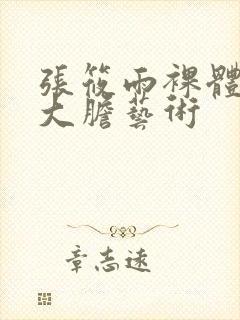 張筱雨裸體
大膽藝術
章志遠